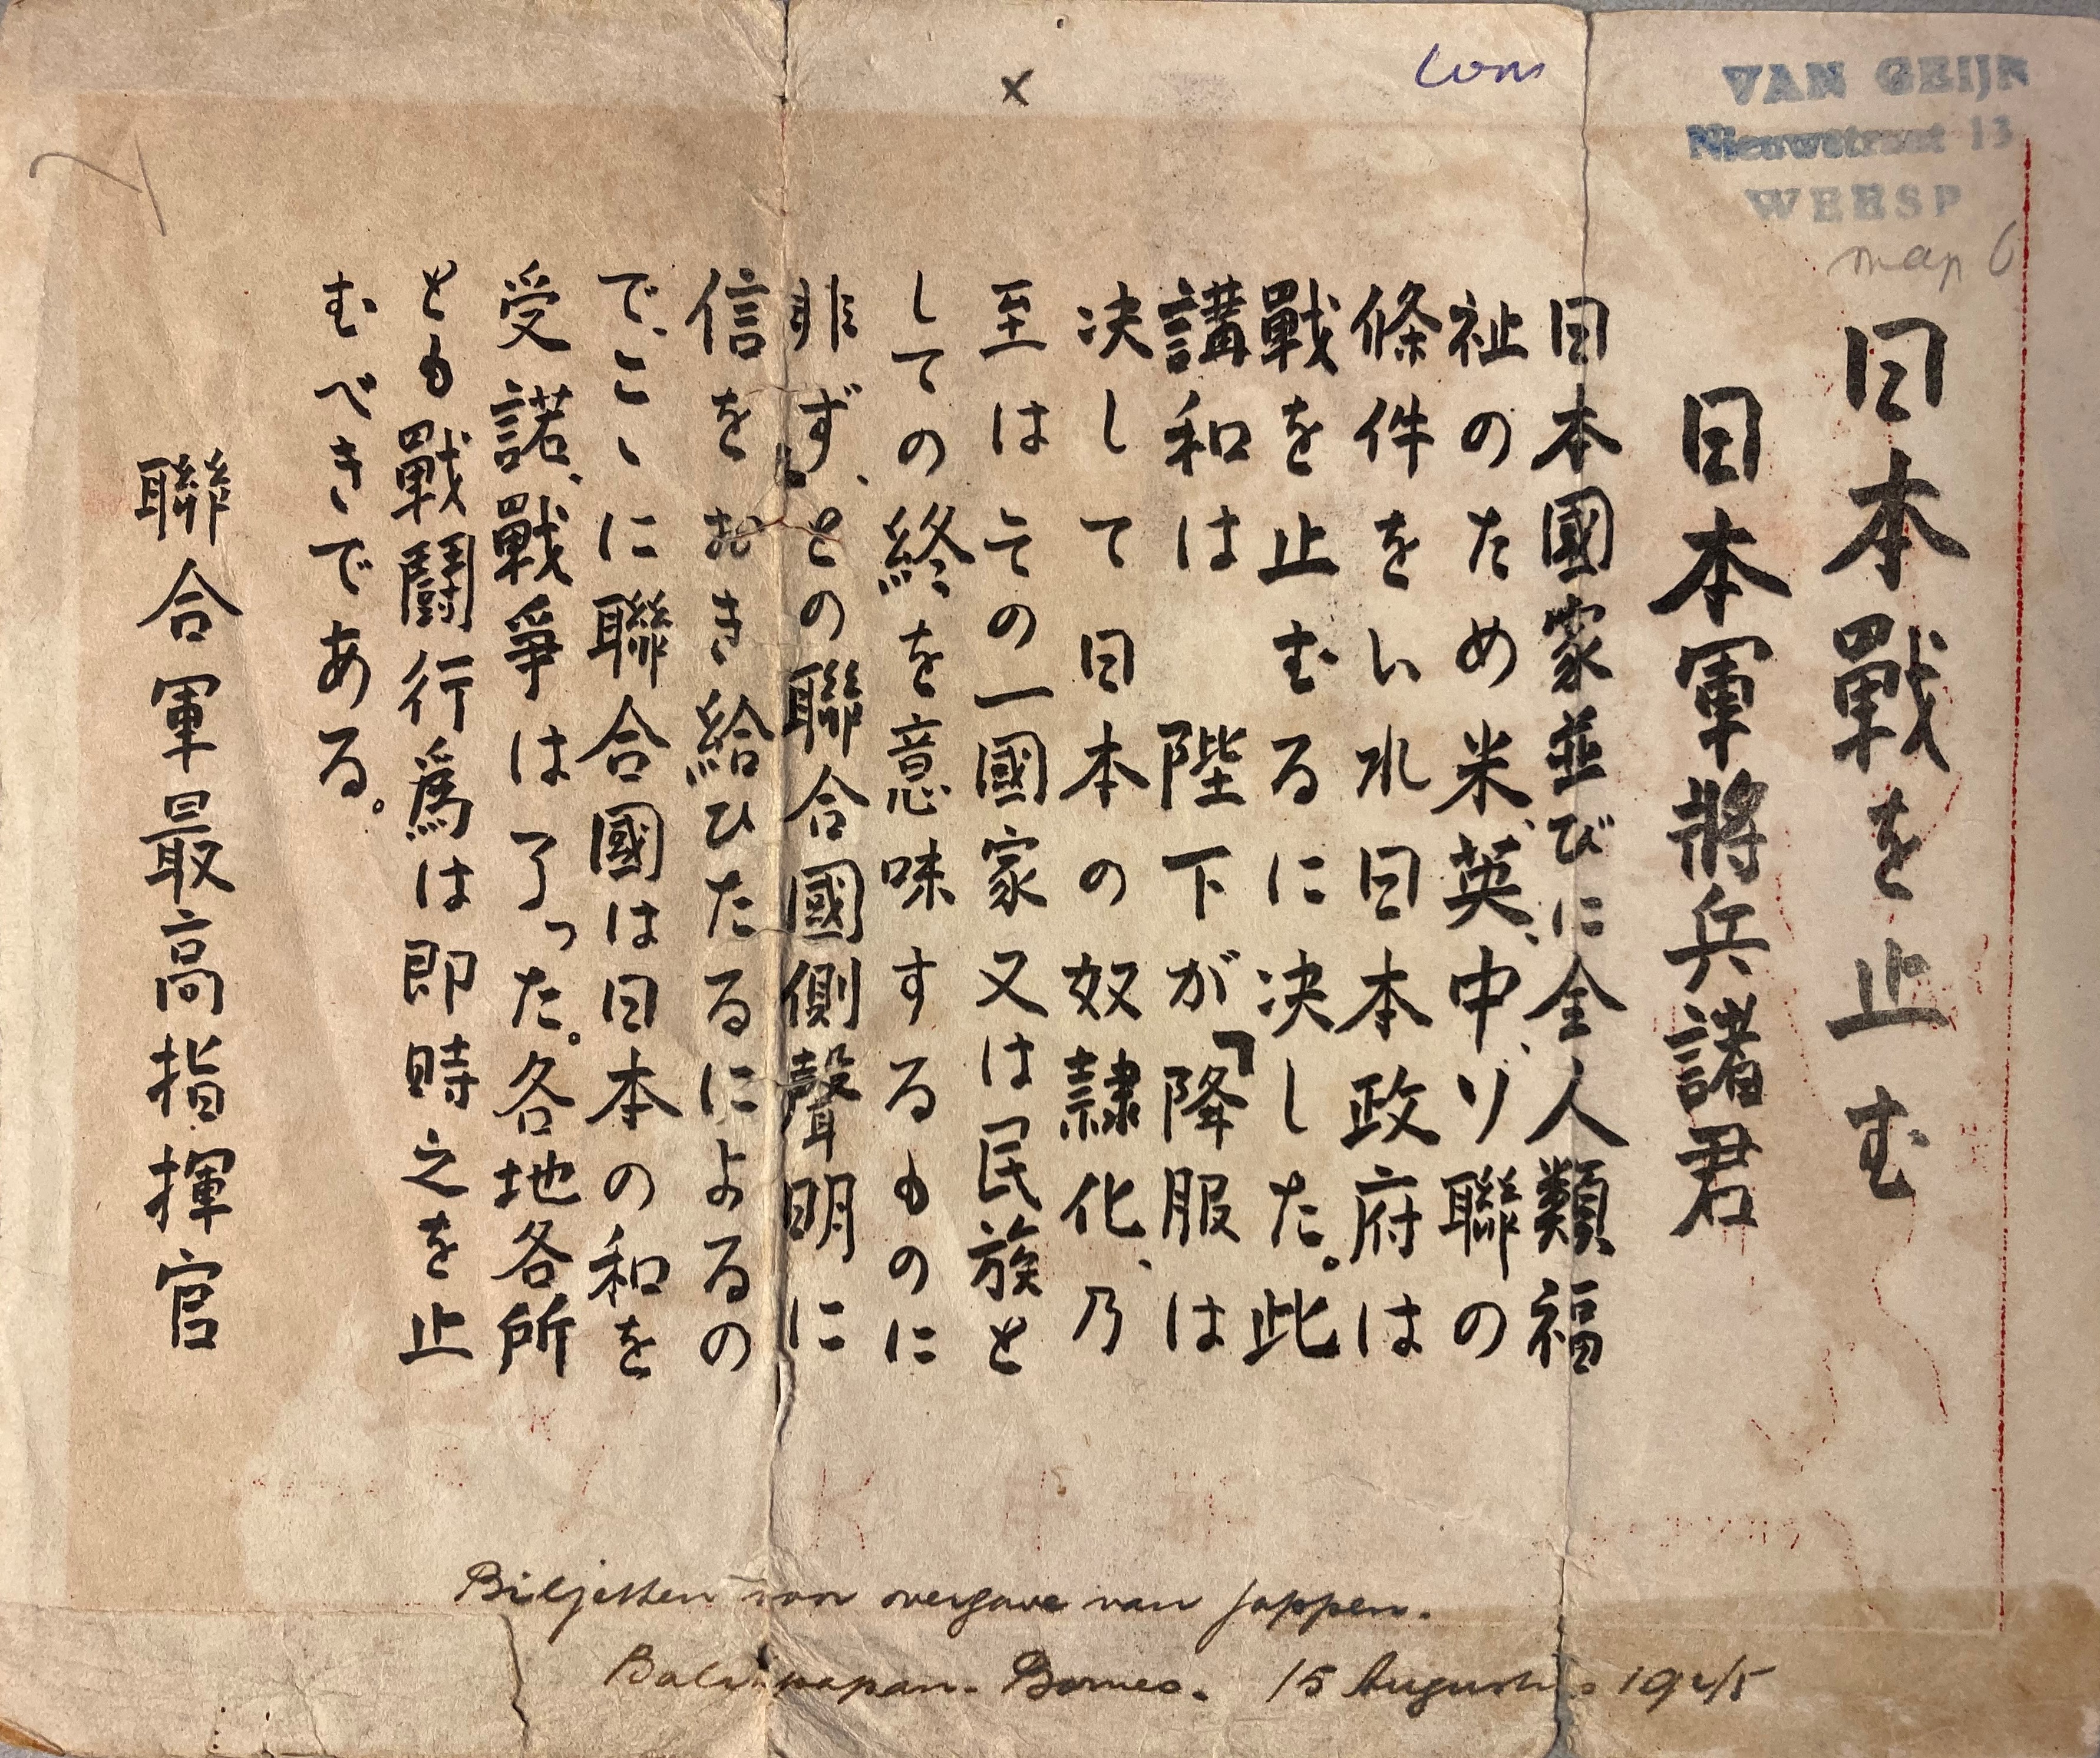 com
x
VAN GEIJN
Nieuwstraat 13
WEESP
map 6
日本戰を止む
日本軍將兵諸君
日本國家並びに全人類福
祉のため米、英、中、ソ聯の
條件をいれ日本政府は
戰を止むるに決した。此
講和は　陛下が「降服は
決して日本の奴隷化、乃
至はその一國家又は民族と
しての終を意味するものに
非ず、との聯合國側聲明に
信をおき給ひたるによるの
で、こゝに聯合國は日本の和を
受諾、戰爭は了った。各地各所
とも戰鬪行爲は即時之を止
むべきである。
聯合軍最高指揮官
Biljetten voor overgave van Jappen.
Balikpapan - Borneo. 15 Augustus 1945